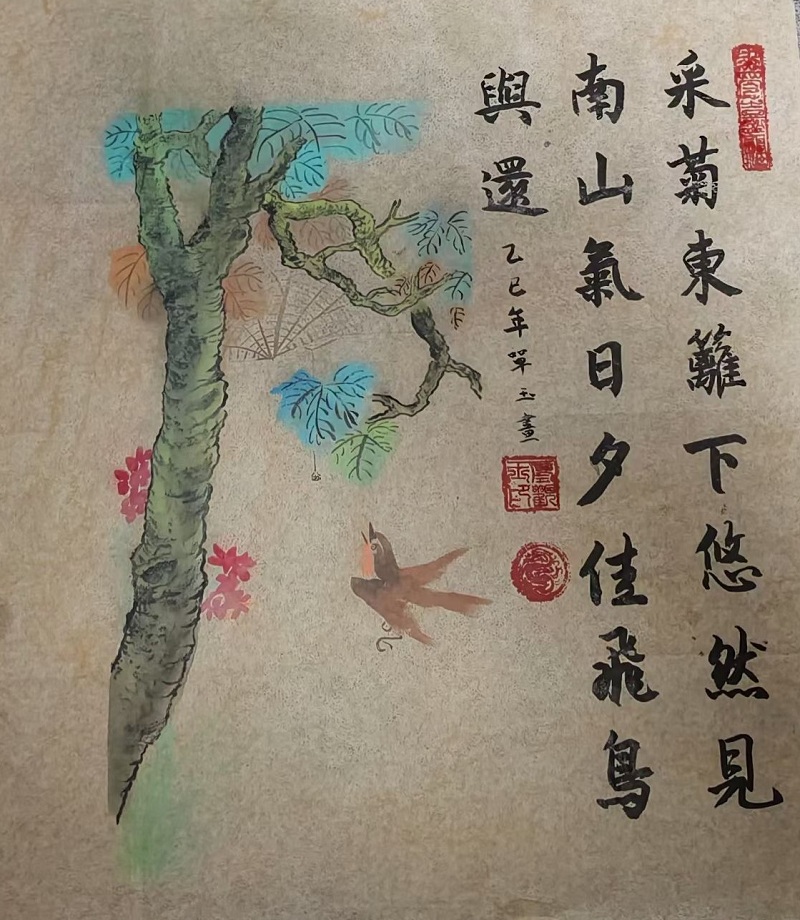 采菊東籬下悠然見
南山氣日夕佳飛鳥
與還
乙巳年單玉畫